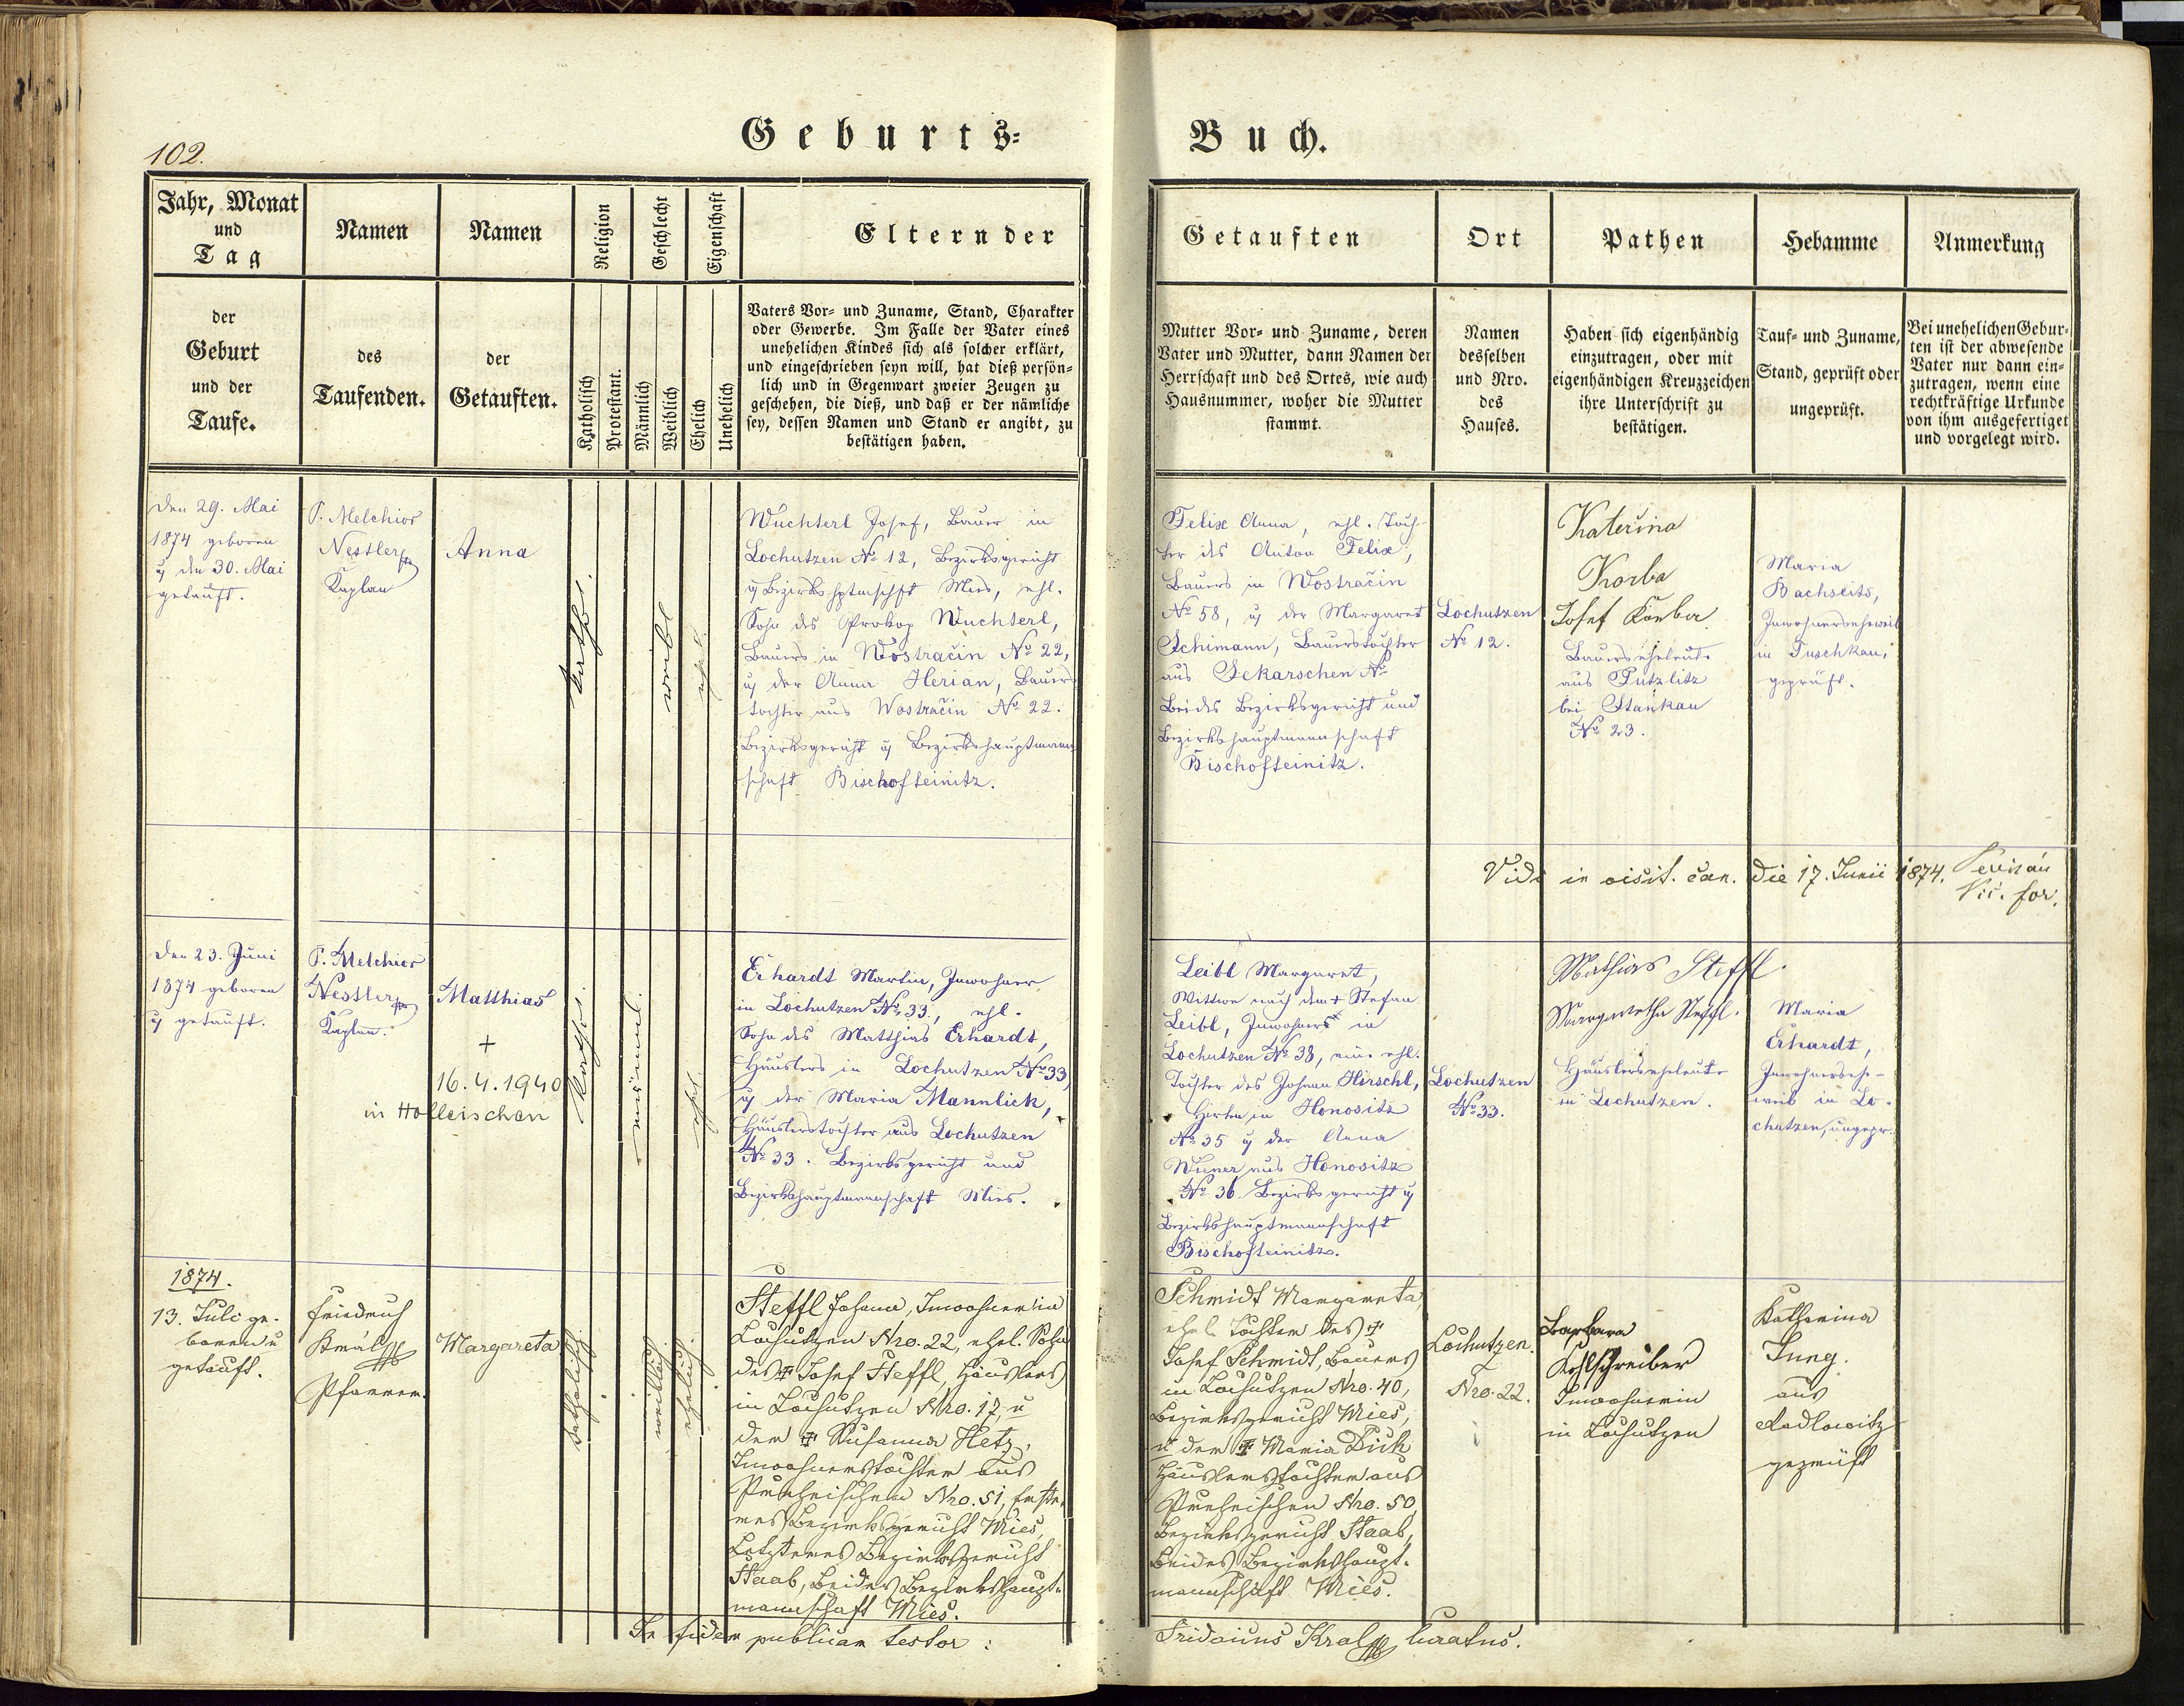 102.
Geburts-
Buch.
Jahr, Monat
und
Tag
der
Geburt
und der
Taufe.
Namen
des
Taufenden.
Namen
der
Getauften.
Religion
Katholisch
Protestant.
Geschlecht
Männlich
Weiblich
Eigenschaft
Ehelich
Unehelich
Eltern der
Vaters Vor- und Zuname, Stand, Charakter
oder Gewerbe. Im Falle der Vater eines
unehelichen Kindes sich als solcher erklärt,
und eingeschrieben seyn will, hat dieß persön-
lich und in Gegenwart zweier Zeugen zu
geschehen, die dieß, und daß er der nämliche
sey, dessen Namen und Stand er angibt, zu
bestätigen haben.
Getauften
Mutter Vor- und Zuname, deren
Vater und Mutter, dann Namen der
Herrschaft und des Ortes, wie auch
Hausnummer, woher die Mutter
stammt.
Ort
Namen
desselben
und Nro.
des
Hauses.
Pathen
Haben sich eigenhändig
einzutragen, oder mit
eigenhändigen Kreuzzeichen
ihre Unterschrift zu
bestätigen.
Hebamme
Tauf- und Zuname,
Stand, geprüft oder
ungeprüft.
Anmerkung
Bei unehelichen Gebur-
ten ist der abwesende
Vater nur dann ein-
zutragen, wenn eine
rechtkräftige Urkunde
von ihm ausgefertiget
und vorgelegt wird.
Den 29. Mai
1874 geboren
u den 30. Mai
getauft.
P. Melchior
Nestler
Kaplan
Anna
kathol.
weibl.
ehel.
Wuchterl Josef, Bauer in
Lochutzen No 12, Bezirksgericht
u Bezirkshptmschft Mies, ehl.
Sohn des Prokop Wuchterl,
Bauers in Wostračin No 22,
u der Anna Herian, Bauers
tochter aus Wostračin No 22.
Bezirksgericht u Bezirkshauptmann
schaft Bischofteinitz.
Felix Anna, ehl. Toch-
ter des Anton Felix,
Bauers in Wostračin
No 58, u der Margaret
Schimann, Bauerstochter
aus Sekarschen No
Beides Bezirksgericht und
Bezirkshauptmannschaft
Bischofteinitz.
Lochutzen
No 12.
Katerina
Korba
Josef Korba
Bauerseheleute
aus Putzlitz
bei Stankau
No 23.
Maria
Bachseits,
Inwohnerseheweib
in Tuschkau,
geprüft.
Vidi in visit. can. die 17. Junii 1874.
Vic. for.
Den 23. Juni
1874 geboren
u getauft.
P. Melchior
Nestler
Kaplan.
Matthias
+
16.4.1940
in Holleischen
kathol.
männl.
ehel.
Erhardt Martin, Inwohner
in Lochutzen No 33, ehl.
Sohn des Matthias Erhardt,
Häuslers in Lochutzen No 33,
u der Maria Mannlick,
Häuslerstochter aus Lochutzen
No 33. Bezirksgericht und
Bezirkshauptmannschaft Mies.
Leibl Margaret,
Wittwe nach dem + Stefan
Leibl, Inwohners in
Lochutzen No 38, eine ehl.
Tochter des Johann Hirschl,
Hirten in Honositz
No 35 u der Anna
Wiener aus Honositz
No 36. Bezirksgericht u
Bezirkshauptmannschaft
Bischofteinitz.
Lochutzen
No 33.
Mathias Steffl.
Margaretha Steffl.
Häuslerseheleute
in Lochutzen.
Maria
Erhardt,
Inwohnersehe-
weib in Lo-
chutzen, ungepr.
1874.
13. Juli ge-
boren u
getauft.
Friedrich
Král
Pfarrer.
Margareta
katholisch.
weiblich
ehelich.
Steffl Johann, Inwohner in
Lochutzen Nro. 22, ehel. Sohn
des + Josef Steffl, Häuslers
in Lochutzen Nro. 17, u
der + Susanna Hetz,
Inwohnerstochter aus
Nro. 51, Erste-
res Bezirksgericht Mies,
Letzteres Bezirksgericht
Staab, beides Bezirkshaupt-
mannschaft Mies.
Schmidt Margareta
ehel. Tochter des +
Josef Schmidt, Bauers
in Lochutzen Nro. 40,
Bezirksgericht Mies,
u der + Maria Dick
Häuslerstochter aus
Nro. 50
Bezirksgericht Staab,
beides Bezirkshaupt-
mannschaft Mies.
Lochutzen.
Nro. 22.
Barbara
Kohlschreiber
Inwohnerin
in Lochutzen
Katharina
Jung.
aus
Radlowitz
geprüft
In fidem publicam testor:
Fridericus Kral curatus.